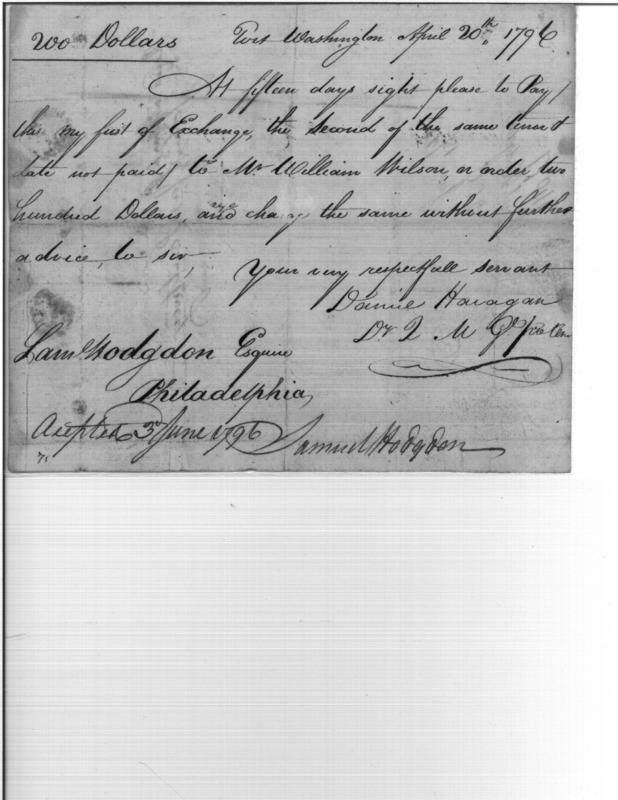 200 Dollars Fort Washington April 20th 1796
At fifteen days sight please to Pay /
this my first of Exchange, the second of the same tenor &
date not paid / to Mr. William Wilson, or order, two
hundred Dollars, and charge the same without further
advice, to sir,
Your very respectfull servant
Daniel Haragan
D Q M Gl
Saml Hodgdon Esquire
Philadelphia,
Accepted 3d June 1796 Samuel Hodgdon